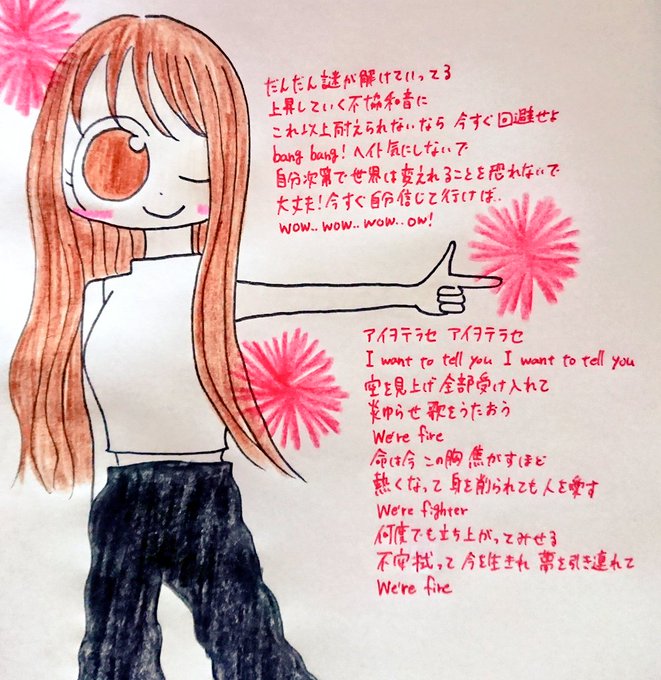 だんだん謎が解けていってる
上昇していく不協和音に
これ以上耐えられないなら 今すぐ回避せよ
bang bang! ヘイト気にしないで
自分次第で世界は変えれることを恐れないで
大丈夫!今すぐ自分信じて行けば..
wow.. wow.. wow.. ow!
アイヲテラセ アイヲテラセ
I want to tell you I want to tell you
空を見上げ全部受け入れて
炎ゆらせ歌をうたおう
We're fire
命は今 この胸焦がすほど
熱くなって身を削られても人を愛す
We're fighter
何度でも立ち上がってみせる
不安拭って今を生きれ 夢を引き連れて
We're fire